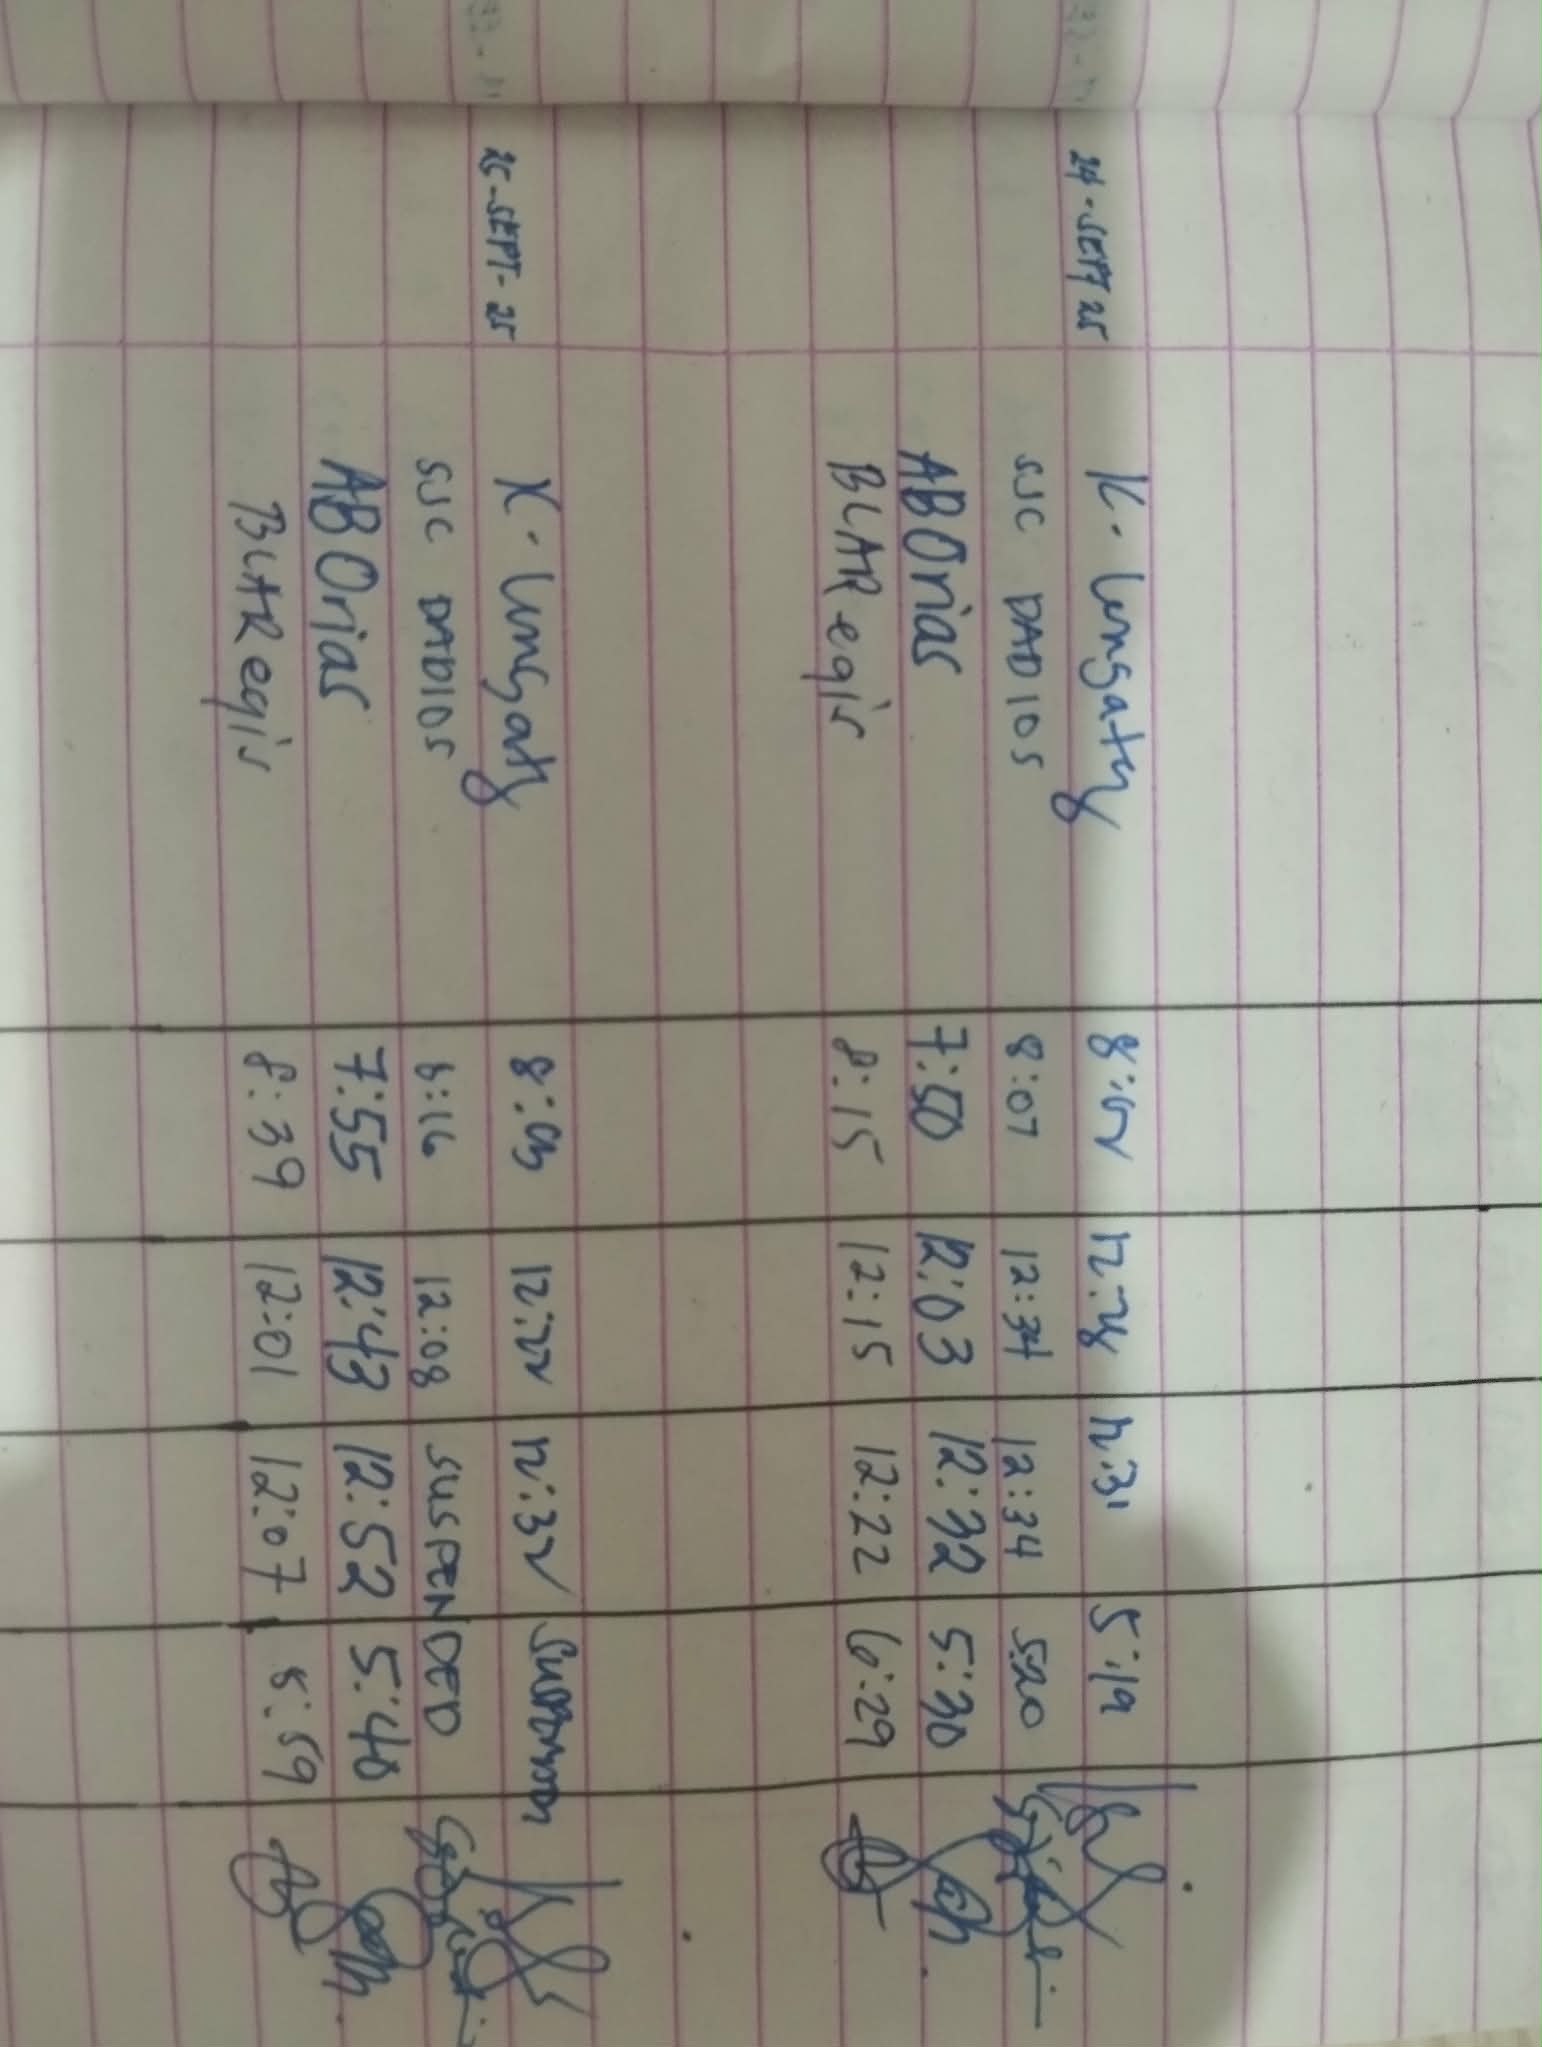 24-SEPT 25 K. Lungaty 8:02 12:28 12:31 5:19
SJC DADIOS 8:07 12:34 12:34 5:20
ABOrias 7:50 12:03 12:32 5:30
BLARegis 8:15 12:15 12:22 6:29
25-SEPT-25 K. Lungaty 8:03 12:22 12:32
SJC DADIOS 8:16 12:08 SUSPENDED
ABOrias 7:55 12:43 12:52 5:40
BLARegis 8:39 12:01 12:07 5:59